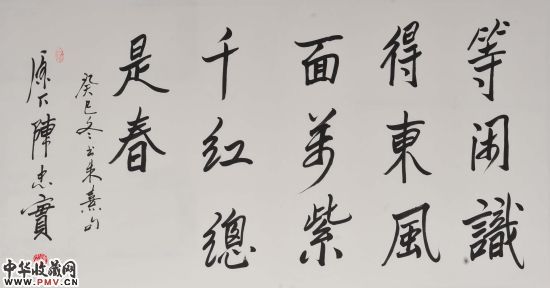 等闲識
得東風
面萬紫
千红總
是春
癸巳冬书朱熹句
原下陳忠實
中华收藏网
www.PMV.CN